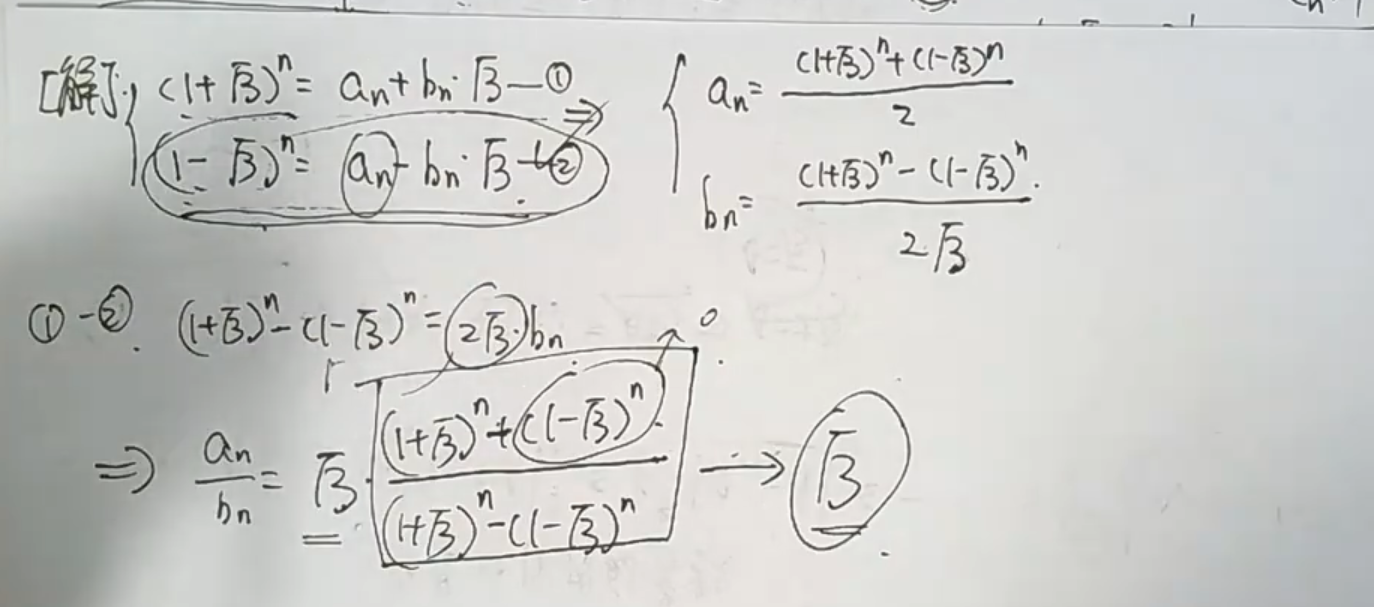 [解]. (1+√3)ⁿ = aₙ + bₙ·√3 — ①
(1-√3)ⁿ = aₙ - bₙ·√3 — ②
⇒ { aₙ = ((1+√3)ⁿ + (1-√3)ⁿ) / 2
bₙ = ((1+√3)ⁿ - (1-√3)ⁿ) / 2√3
① - ② (1+√3)ⁿ - (1-√3)ⁿ = 2√3·bₙ
0
⇒ aₙ/bₙ = √3 · ((1+√3)ⁿ + (1-√3)ⁿ) / ((1+√3)ⁿ - (1-√3)ⁿ) → √3